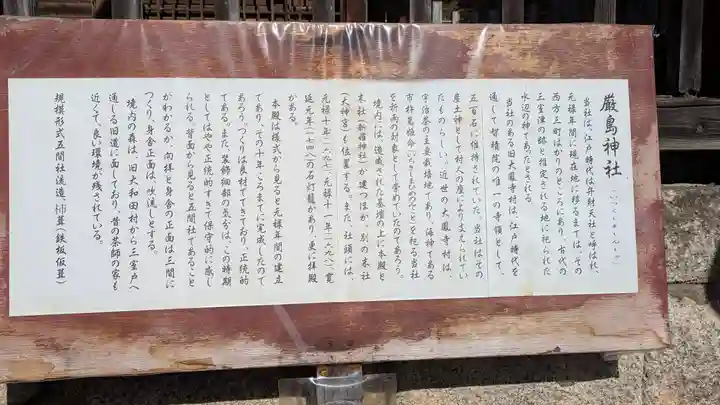 厳島神社（いつくしまじんじゃ）
当社は、江戸時代は弁財天社と呼ばれ、
元禄年間に現在地に移るまでは、その
西方三町ばかりのところにあり、古代の
三室津の跡と推定される地に祀られた
水辺の神であったとされる。
当社のある旧大鳳寺村は、江戸時代を
通して、智積院の唯一の寺領として、
五百石に維持されていた。当社はその
産土神として村人の座により支えられてい
たものらしい。近世の大鳳寺村は、
宇治茶の主要栽培地であり、海神である
市杵島姫命（いちきしまひめのみこと）を祀る当社
を祈雨の対象として崇めていたのであろう。
境内には、造成された基壇の上に本殿と
末社（新宿神社）が建つほか、別の末社
（大神宮）も位置する。また、社頭には、
元禄十年（一六九七）、元禄十一年（一六九八）、寛
延元年（一七四八）の石灯籠があり、更に拝殿
がある。
本殿は様式から見ると元禄年間の建立
であり、その十年ころまでに完成したので
あろう。つくりは良材でできており、正統的
てある。また、装飾細部の気分は、この時期
としてはやや正統的すぎて保守的に感じ
られる。背面から見ると五間社であること
がわかるが、向拝と身舎の正面は三間に
つくり、身舎正面は、吹流しとする。
境内の森は、旧大和田村から三室戸へ
通じる旧道に面しており、昔の茶師の家も
近くて、良い環境が残されている。
規模形式 五間社流造、杮葺（鉄板仮葺）